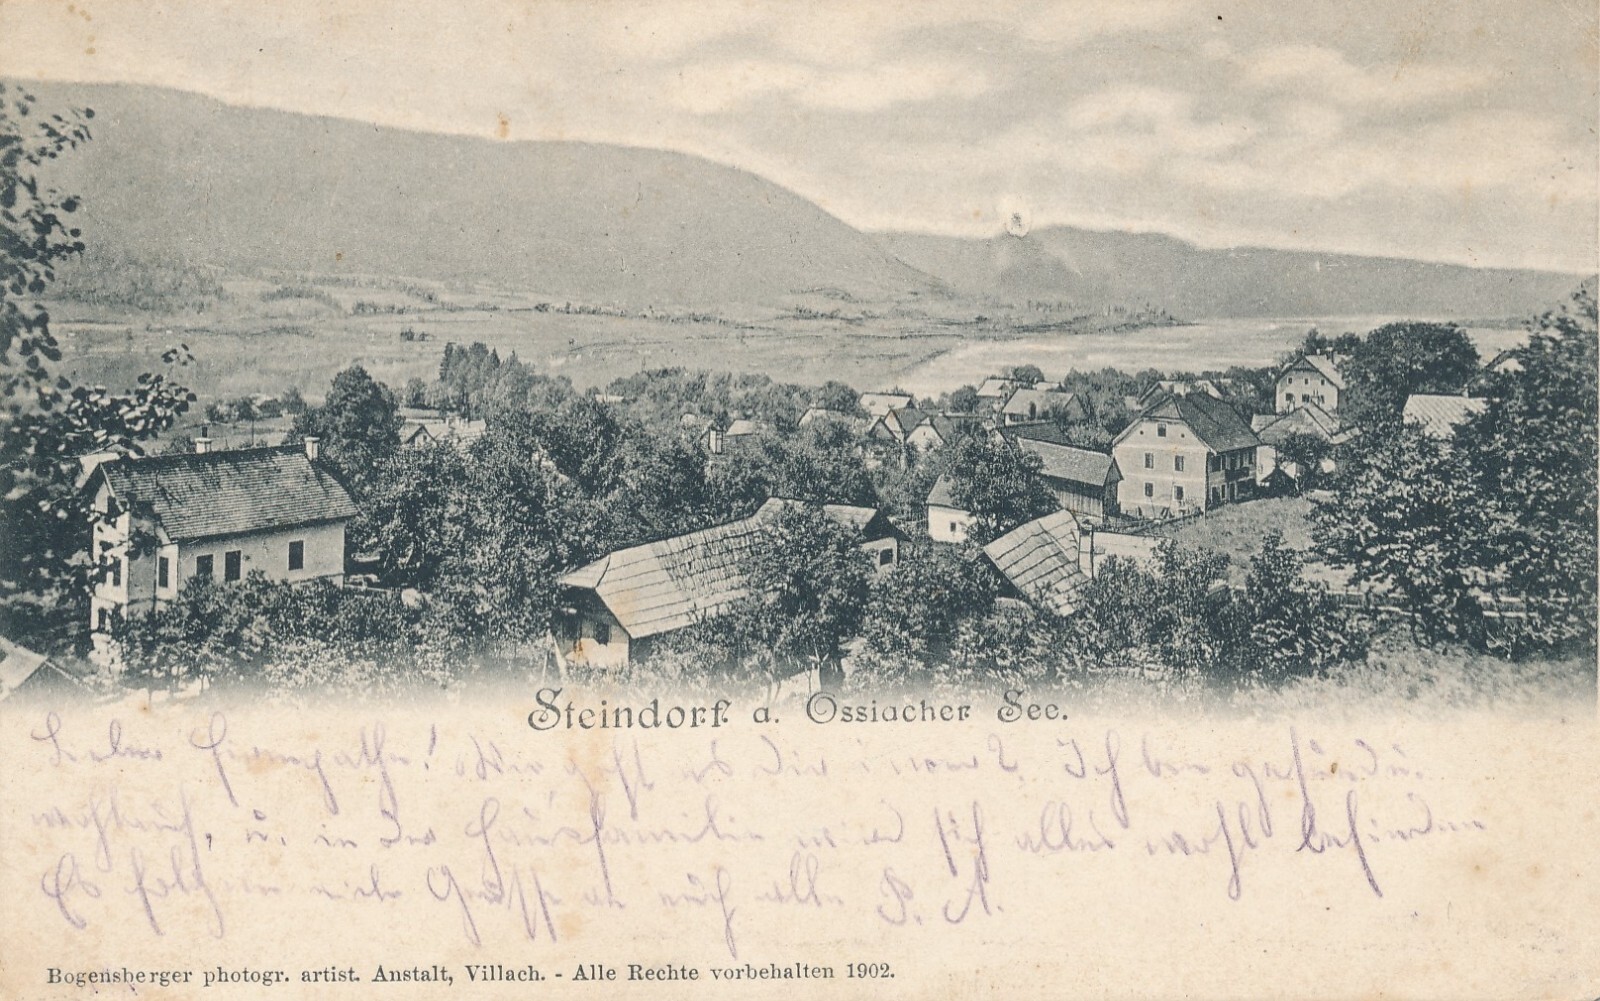 Steindorf a. Ossiacher See.
Lieber Firmpathe! Wie geht es Dir immer? Ich bin gesund u.
wohlauf, u. in der Hausfamilie wird sich alles wohl befinden
Es folgen viele Grüsse an euch alle P. A.
Bogensberger photogr. artist. Anstalt, Villach. - Alle Rechte vorbehalten 1902.